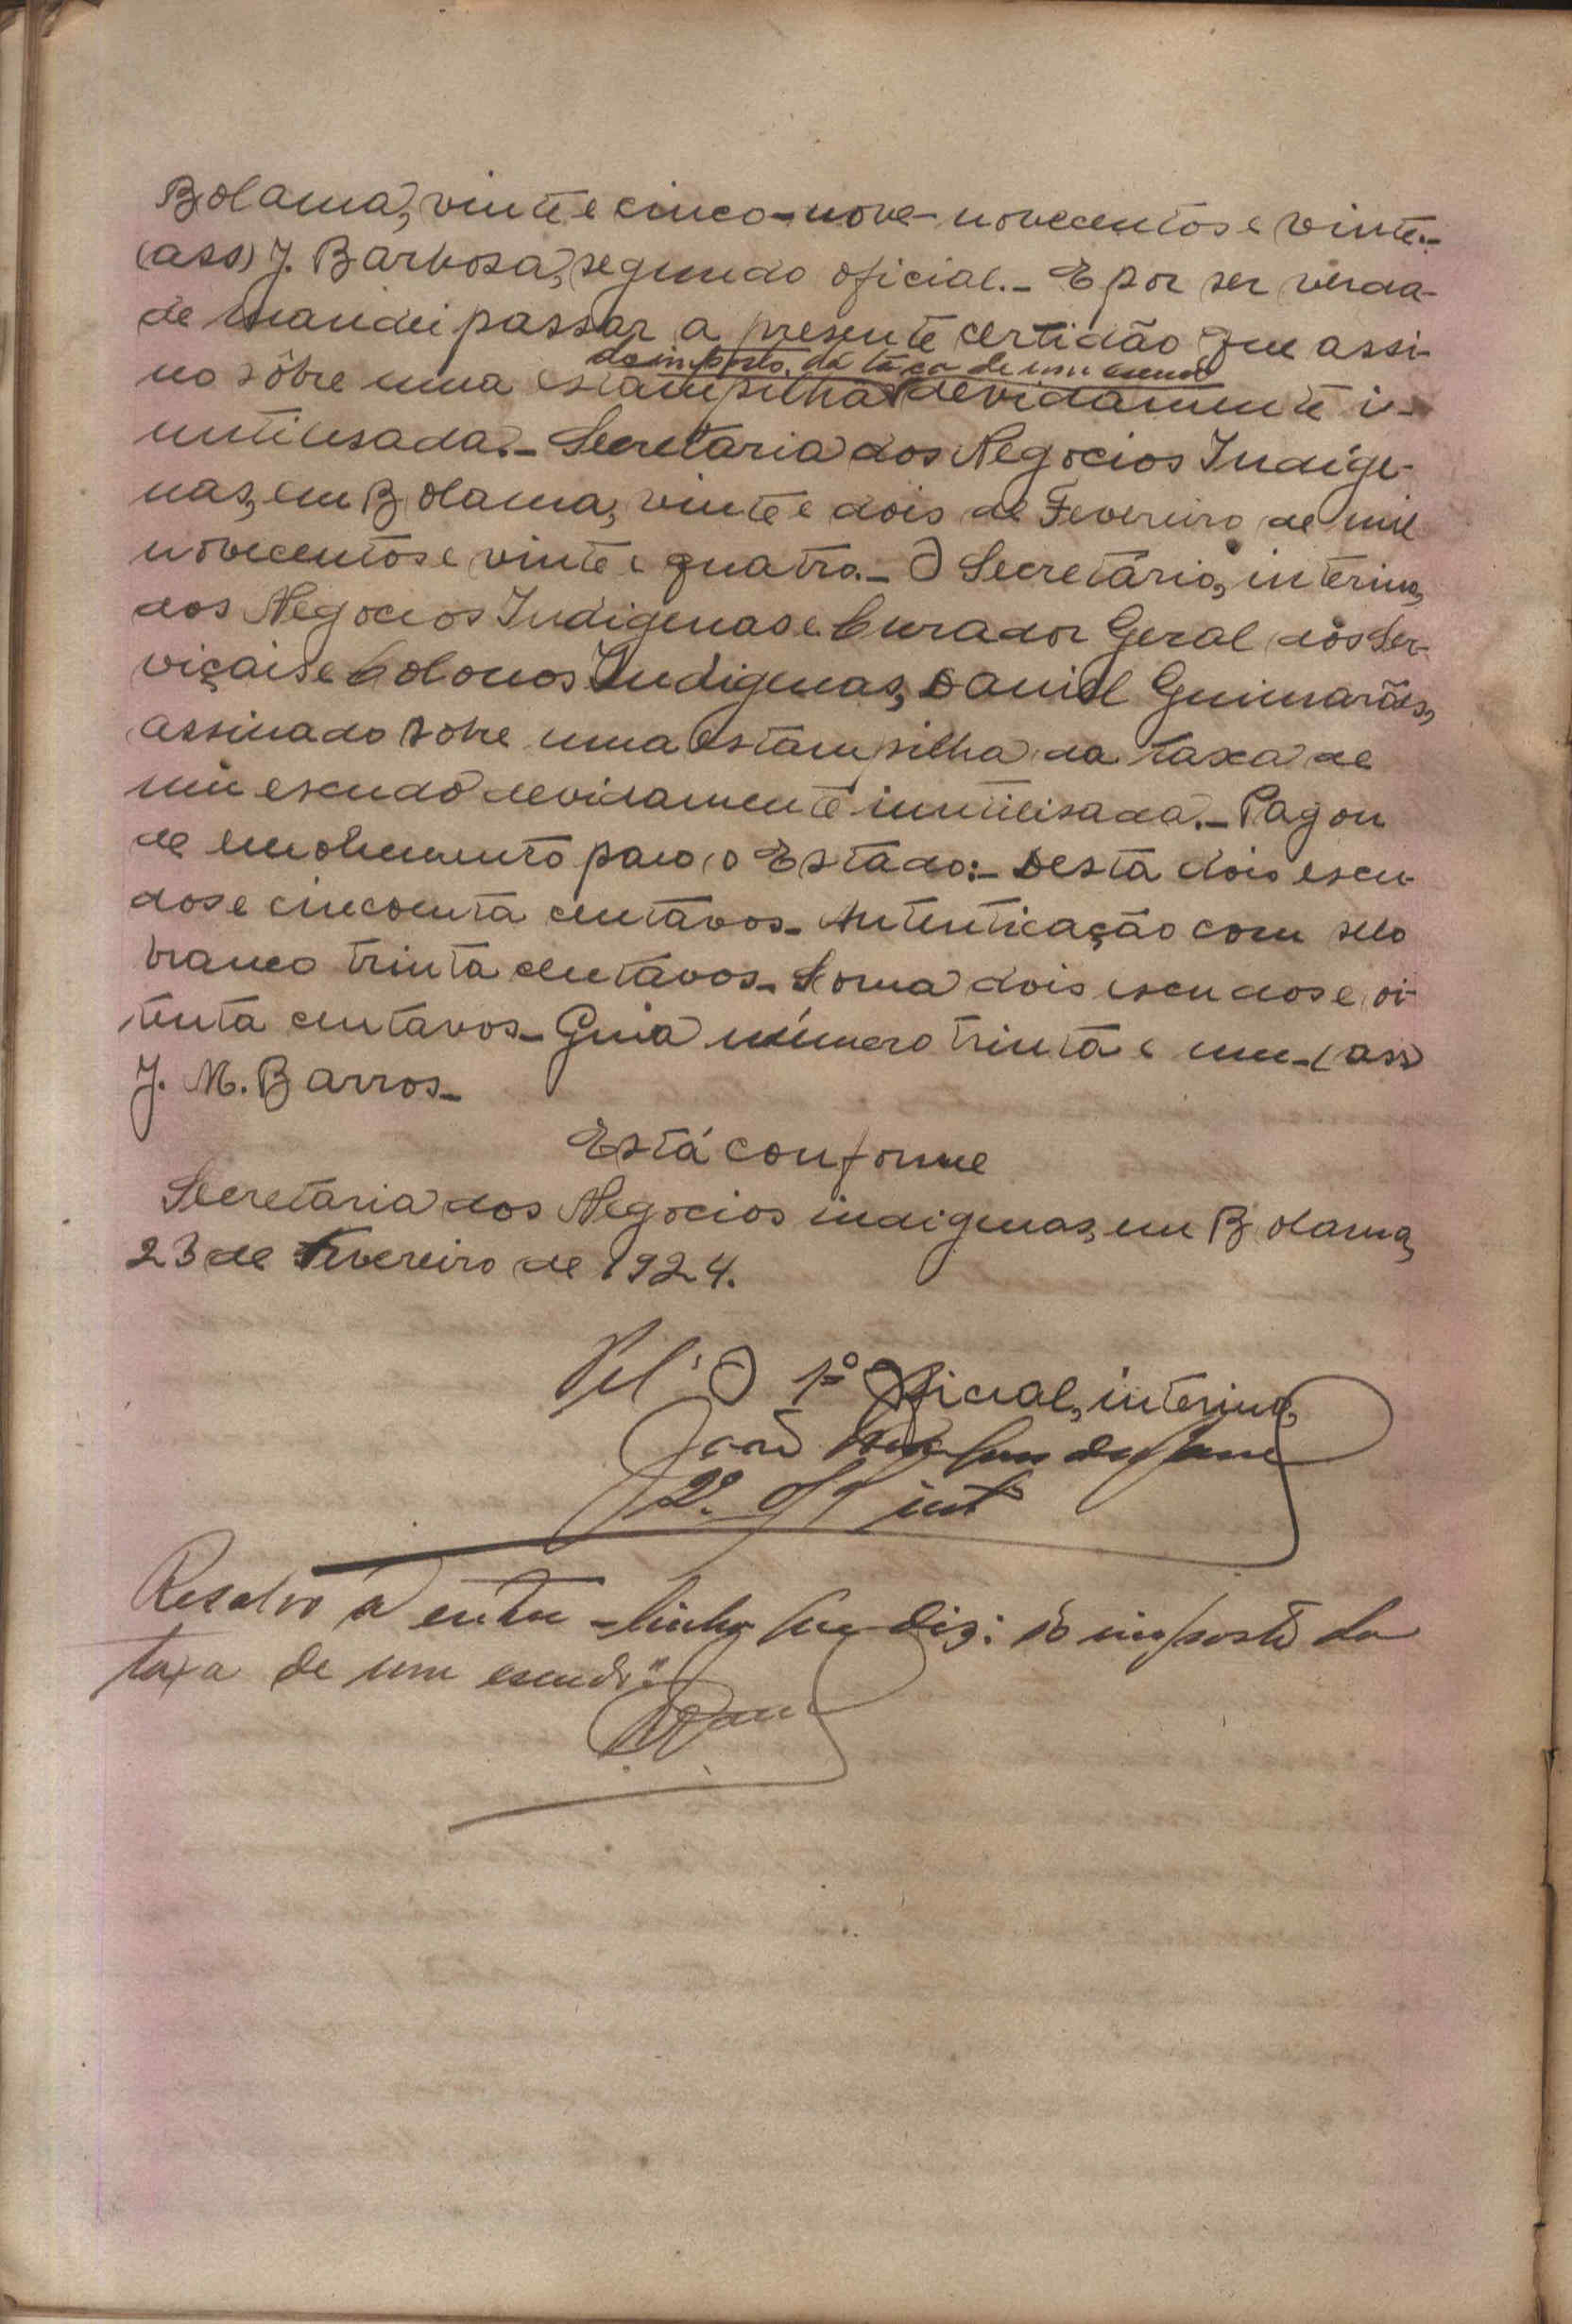 Bolama, vinte e cinco-nove-novecentos e vinte.-
(ass) J. Barbosa, segundo oficial.- E por ser verda-
de mandei passar a presente certidão que assi-
do imposto, da taxa de um escudo
no sôbre uma estampilha devidamente i-
nutilisada.- Secretaria dos Negocios Indige-
nas, em Bolama, vinte e dois de Fevereiro de mil
novecentos e vinte e quatro.- O Secretário, interino,
dos Negocios Indigenas e Curador Geral dos Ser-
viçais e Colonos Indigenas, Daniel Guimarães,
assinado sobre uma estampilha da taxa de
um escudo devidamente inutilisada.- Pagou
de emolumento para o Estado:- Desta dois escu-
dos e cincoenta centavos- Autenticação com selo
branco trinta centavos- Soma dois escudos e oi-
tenta centavos- Guia número trinta e um-(ass)
J. M. Barros-
Está conforme
Secretaria dos Negocios indigenas, em Bolama,
23 de Fevereiro de 1924.
Pel' O 1º Oficial, interino,
João
2º. Of intº
Resalvo a entre-linha que diz: "do imposto da
taxa de um escudo"